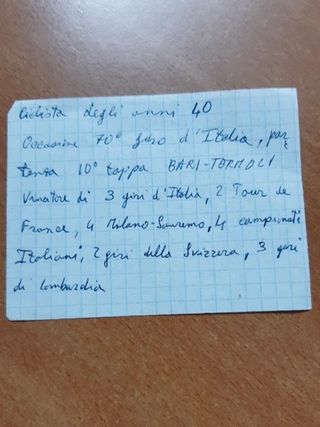 Ciclista degli anni 40
Occasione 70° giro d'Italia, par
tenza 10° tappa BARI-TERMOLI
Vincitore di 3 giri d'Italia, 2 Tour de
France, 4 Milano-Sanremo, 4 campionati
Italiani, 2 giri della Svizzera, 3 giri
di lombardia